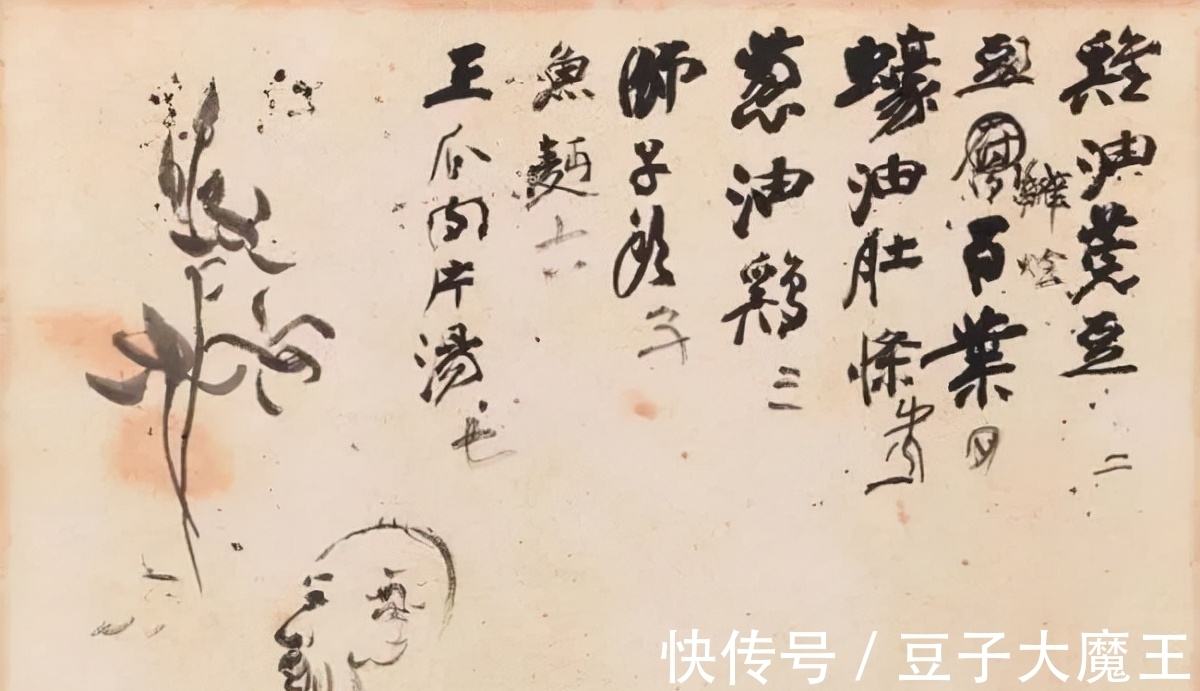 雞油豆 二
雜燴
豆百葉 四
蠔油肚條
一
葱油鷄 三
師子頭
魚麵 六
王瓜肉片湯 七
快传号 / 豆子大魔王